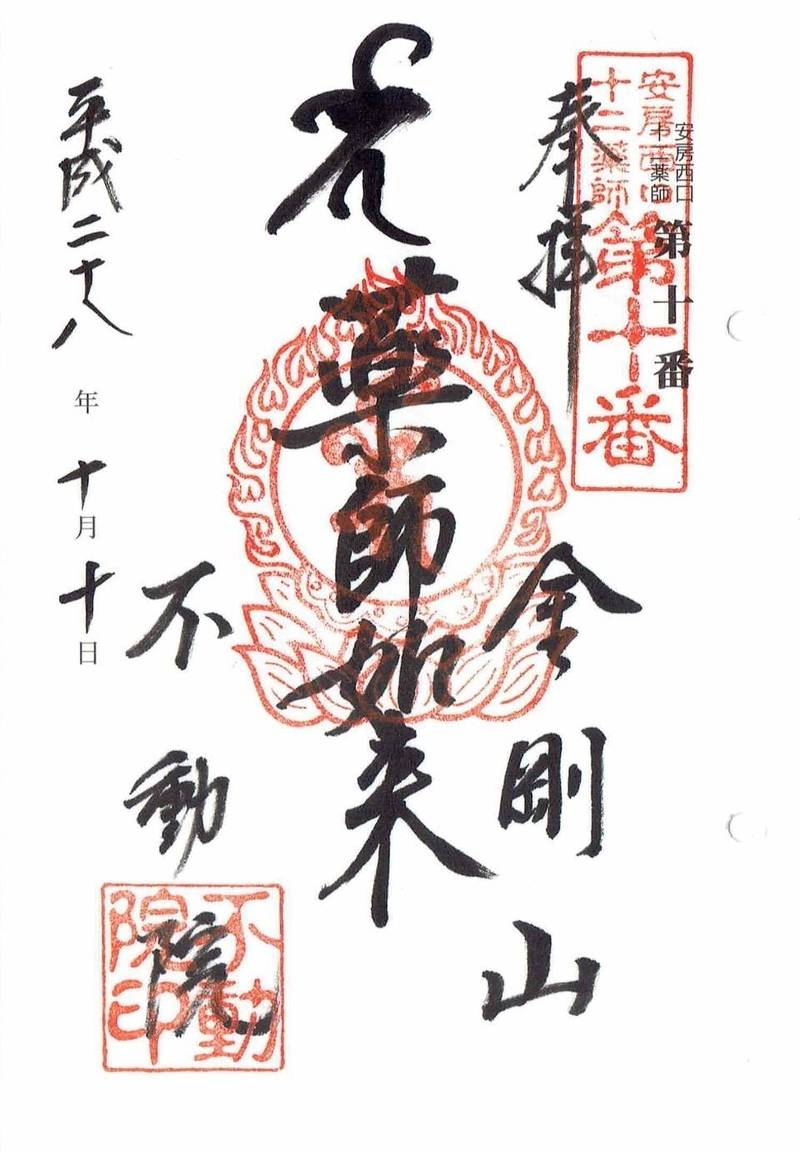 安房西口
十二薬師
第十番
安房西口
十二薬師
第十番
奉拝
金剛山
薬師如来
不動院
不動
院印
平成二十八年十月十日